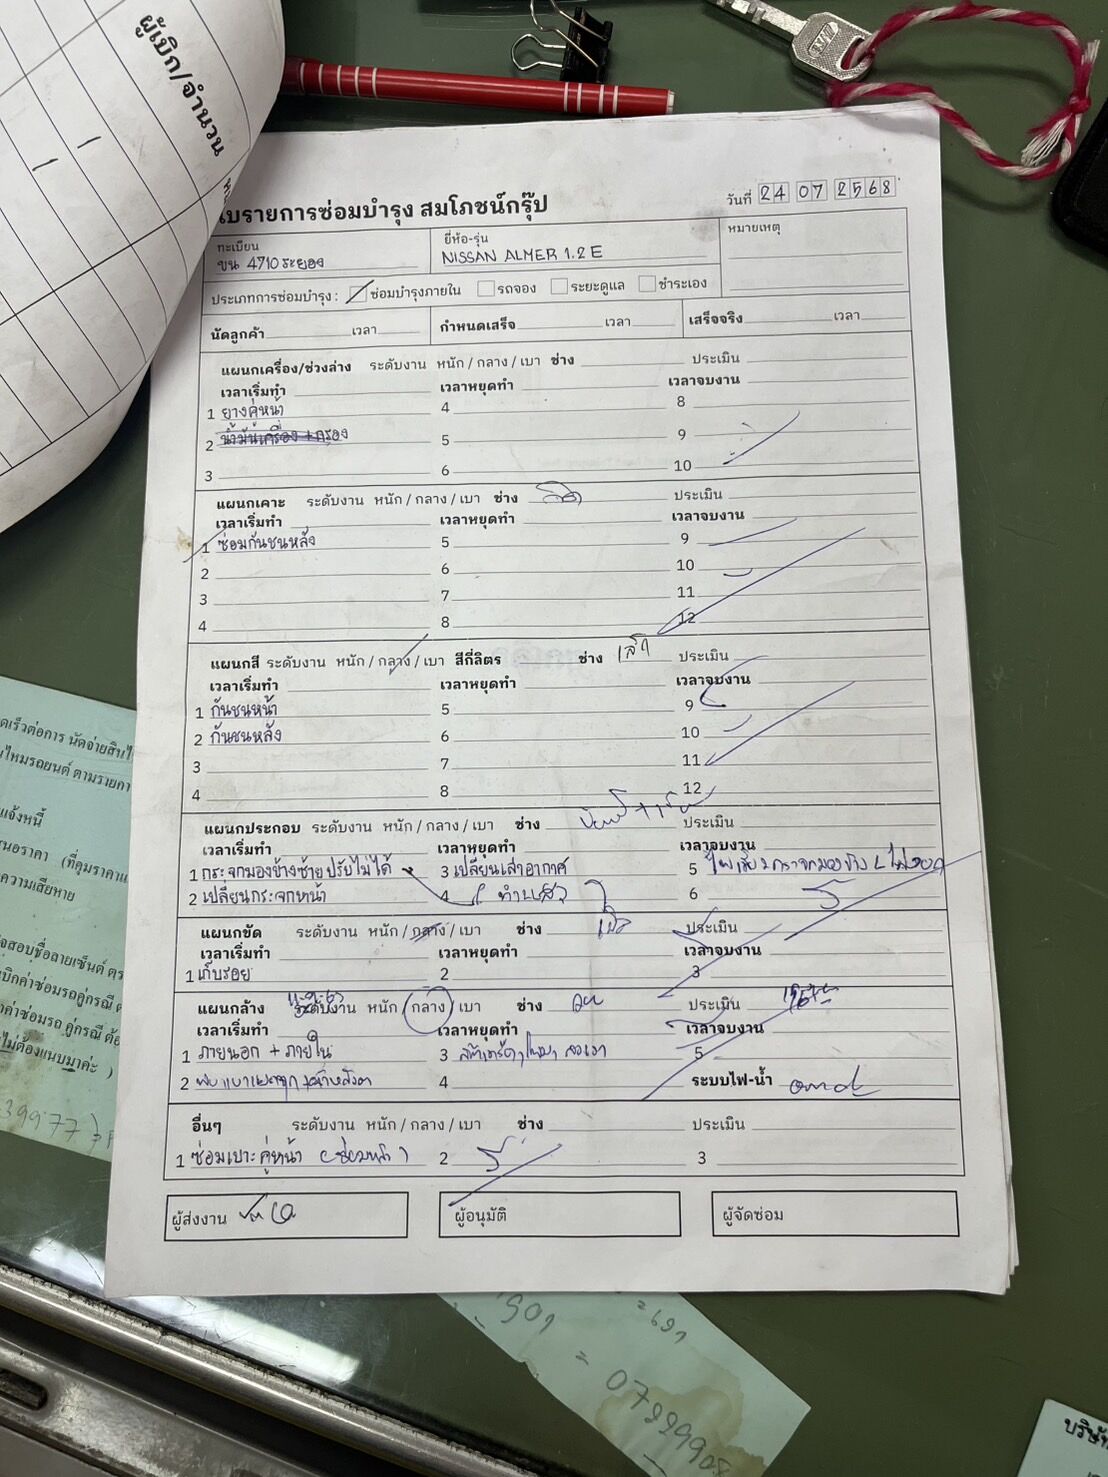 ผู้เบิก/จำนวน
ใบรายการซ่อมบำรุง สมโภชน์กรุ๊ป
วันที่ 24 07 2568
ทะเบียน ยี่ห้อ-รุ่น หมายเหตุ
ขน 4710 ระยอง NISSAN ALMER 1.2 E
ประเภทการซ่อมบำรุง : ซ่อมบำรุงภายใน รถจอง ระยะดูแล ชำระเอง
นัดลูกค้า เวลา กำหนดเสร็จ เวลา เสร็จจริง เวลา
แผนกเครื่อง/ช่วงล่าง ระดับงาน หนัก / กลาง / เบา ช่าง ประเมิน
เวลาเริ่มทำ เวลาหยุดทำ เวลาจบงาน
1 ยางคู่หน้า 4 8
2 น้ำมันเครื่อง + กรอง 5 9
3 6 10
แผนกเคาะ ระดับงาน หนัก / กลาง / เบา ช่าง ประเมิน
เวลาเริ่มทำ เวลาหยุดทำ เวลาจบงาน
1 ซ่อมกันชนหลัง 5 9
2 6 10
3 7 11
4 8 12
แผนกสี ระดับงาน หนัก / กลาง / เบา สีกี่ลิตร ช่าง ประเมิน
เวลาเริ่มทำ เวลาหยุดทำ เวลาจบงาน
1 กันชนหน้า 5 9
2 กันชนหลัง 6 10
3 7 11
4 8 12
แผนกประกอบ ระดับงาน หนัก / กลาง / เบา ช่าง ประเมิน
เวลาเริ่มทำ เวลาหยุดทำ เวลาจบงาน
1 กระจกมองข้างซ้ายปรับไม่ได้ 3 เปลี่ยนเสาอากาศ 5
2 เปลี่ยนกระจกหน้า 4 ( ทำแล้ว ) 6
แผนกขัด ระดับงาน หนัก / กลาง / เบา ช่าง ประเมิน
เวลาเริ่มทำ เวลาหยุดทำ เวลาจบงาน
1 เก็บรอย 2 3
แผนกล้าง ระดับงาน หนัก / กลาง / เบา ช่าง ประเมิน
เวลาเริ่มทำ เวลาหยุดทำ เวลาจบงาน
1 ภายนอก + ภายใน 3 5
2 4 ระบบไฟ-น้ำ
อื่นๆ ระดับงาน หนัก / กลาง / เบา ช่าง ประเมิน
1 ซ่อมเบาะคู่หน้า 2 3
ผู้ส่งงาน ผู้อนุมัติ ผู้จัดซ่อม
แจ้งหนี้
ความเสียหาย
บริษัท